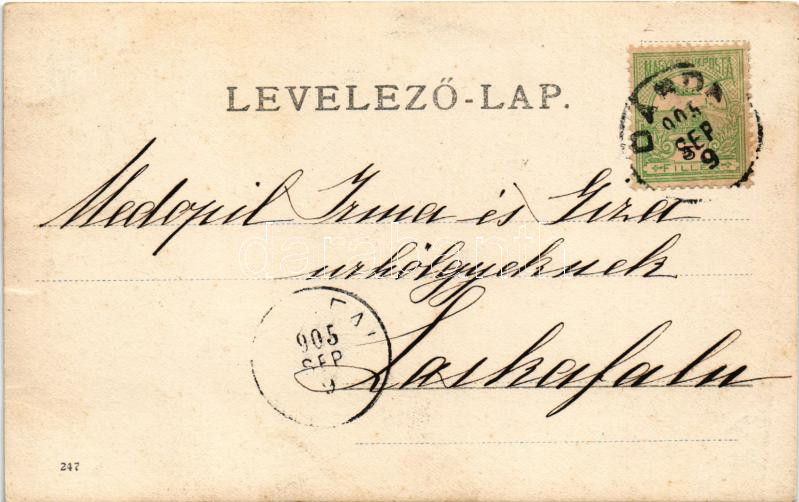 LEVELEZŐ-LAP.
MAGYAR KIR. POSTA
DÁRDA
905
SEP
9
FILLÉR
Medopil Irma és Giza
úrhölgyeknek
Laskafalu
905
SEP
9
247